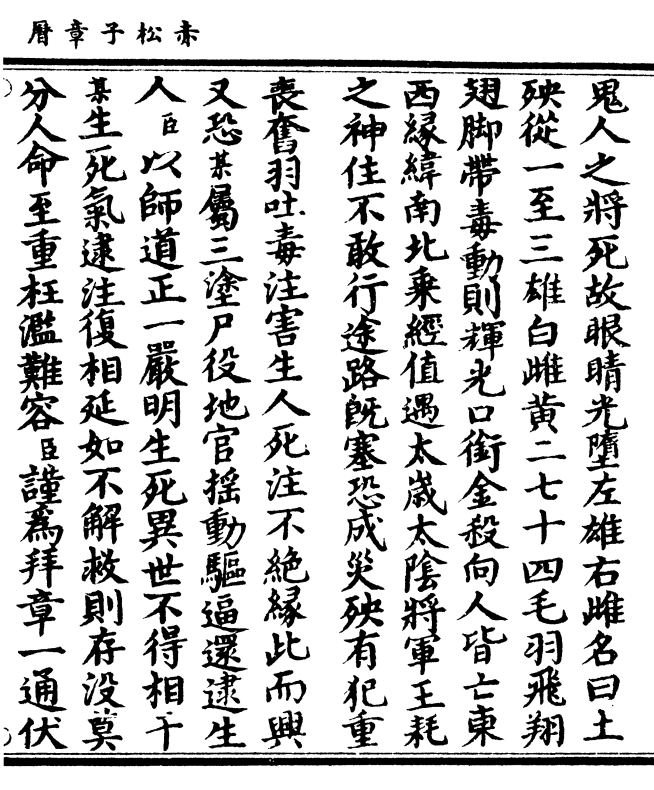 赤松子章曆
鬼人之將死故眼睛光墮左雄右雌名曰土
殃從一至三雄白雌黃二七十四毛羽飛翔
翅脚帶毒動則輝光口銜金殺向人皆亡東
西緣緯南北乘經值遇太歲太陰將軍王耗
之神住不敢行途路旣塞恐成災殃有犯重
喪奮羽吐毒注害生人死注不絕緣此而興
又恐某屬三塗尸役地官揺動驅逼還逮生
人臣以師道正一嚴明生死異世不得相干
某生死氣逮注復相延如不解救則存没莫
分人命至重枉濫難容臣謹爲拜章一通伏